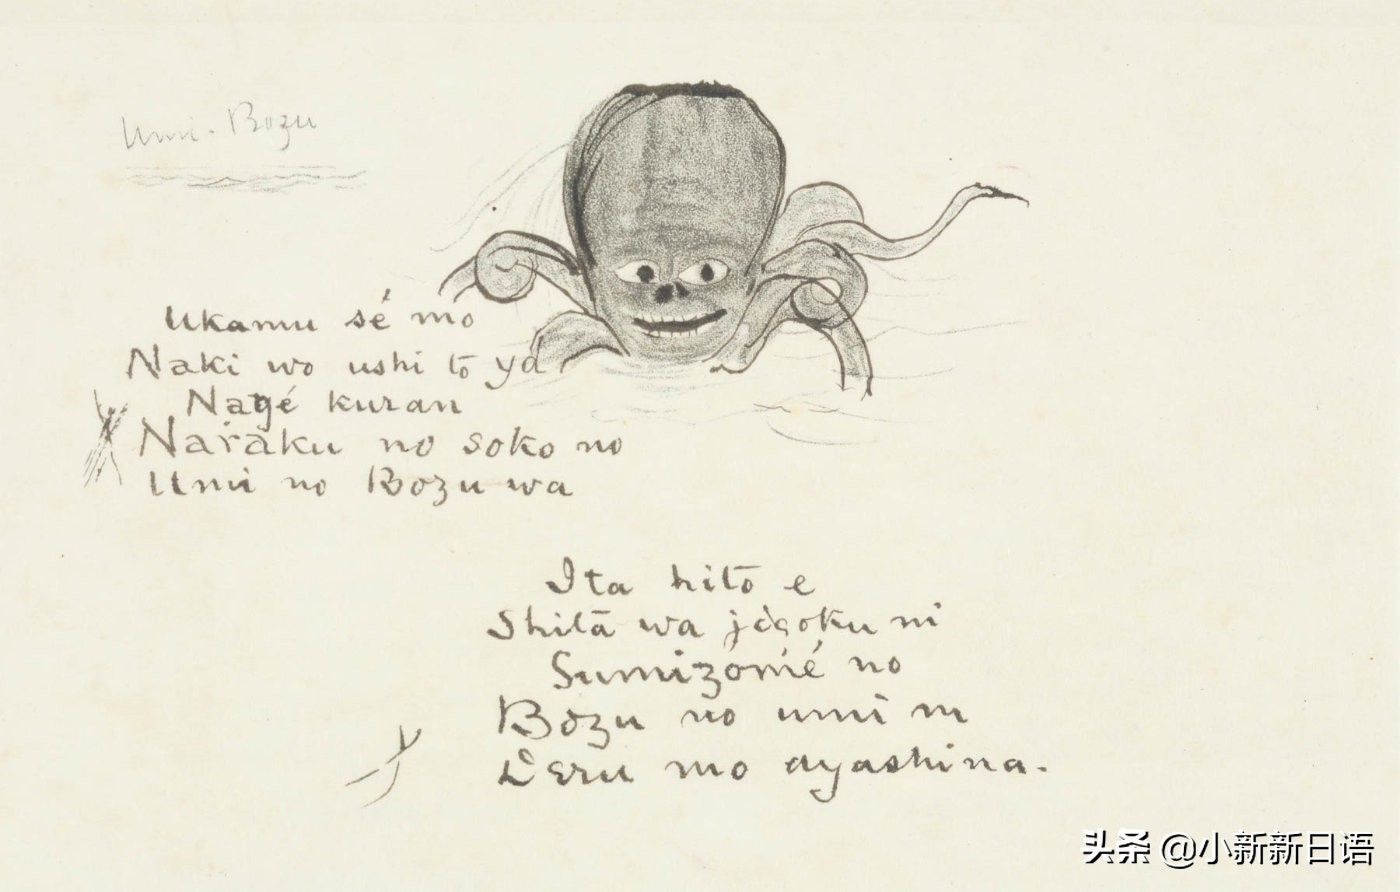 Umi-Bozu
Ukamu sé mo
Naki wo ushi tō ya
Nagé kuran
Naraku no soko no
Umi no Bozu wa
Ita hitō e
Shitā wa jégoku ni
Sumizōmé no
Bozu no umi ni
Déru mo ayashina.
头条 @小新新日语